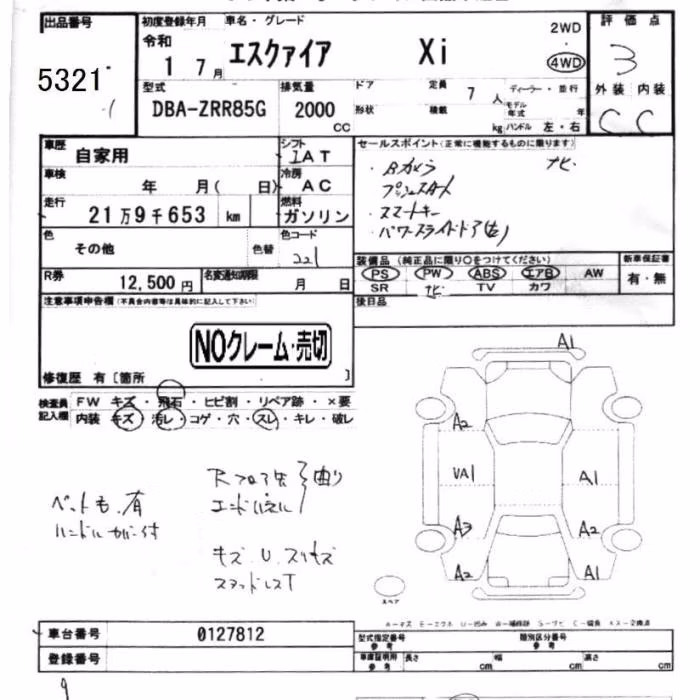 出品番号
5321
初度登録年月 車名・グレード
令和
1 7月
エスクァイア Xi
2WD
4WD
評価点
3
外装 内装
C C
型式
DBA-ZRR85G
排気量
2000
CC
ドア 定員 7人
ディーラー・並行
形状 積載 kg
モデル年式 年
ハンドル 左・右
車歴
自家用
シフト
IAT
車検
年 月( 日)
冷房
AC
走行
21万9千653 km
燃料
ガソリン
色
その他
色替
色コード
221
R券
12,500円
名変通知期限
月 日
セールスポイント(正常に機能するものに限ります)
・Bカメラ ナビ
・プッシュスタート
・スマートキー
・パワースライドドア(左)
装備品(純正品に限り○をつけてください)
PS PW ABS エアB AW
SR ナビ TV カワ
新車保証書
有・無
後日品
注意事項申告欄(不具合内容等は具体的に記入して下さい)
NOクレーム・売切
修復歴 有〔箇所 〕
検査員記入欄
FW キズ・飛石・ヒビ割・リペア跡・×要
内装 キズ・汚レ・コゲ・穴・スレ・キレ・破レ
ペットも有
ハンドルカバー付
エンドパネル
曲り
キズ、U、スリキズ
スタッドレスT
A1
A2
VA1
A1
A3
A2
A2
A1
スペア
A-キズ E-エクボ U-凹み W-補修跡 S-サビ C-腐食 XX-交換済
車台番号
0127812
登録番号
型式指定番号
参考
類別区分番号
参考
車庫証明用
参考
長さ cm 幅 cm 高さ cm